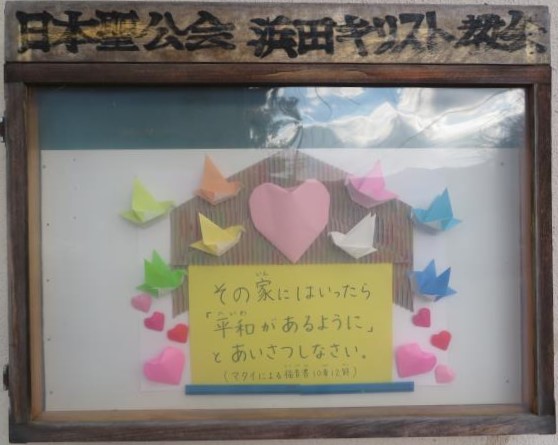 日本聖公会 浜田キリスト教会
その家にはいったら
「平和があるように」
とあいさつしなさい。
(マタイによる福音書10章12節)